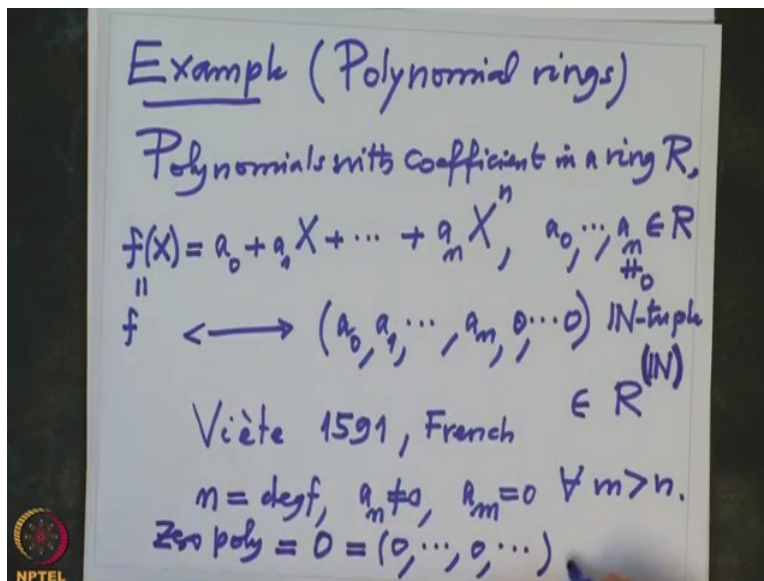 Example (Polynomial rings)
Polynomials with coefficient in a ring R,
f(X) = a₀ + a₁X + ⋯ + aₙXⁿ, a₀, ⋯, aₙ ∈ R
‖ ≠0
f ⟷ (a₀, a₁, ⋯, aₙ, 0, ⋯ 0) ℕ-tuple
∈ R^(ℕ)
Viète 1591, French
n = deg f, aₙ ≠ 0, aₘ = 0 ∀ m > n.
Zero poly = 0 = (0, ⋯, 0, ⋯)
NPTEL